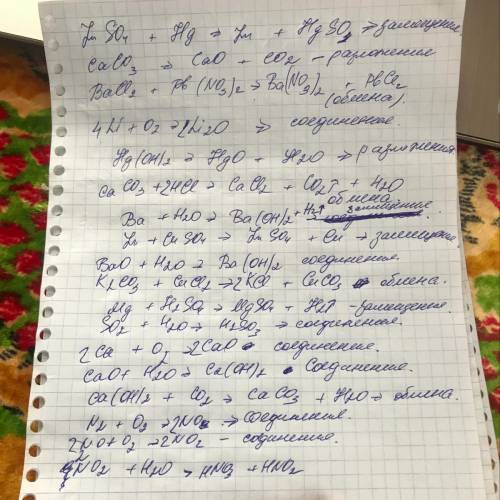 Zn SO₄ + Hg → Zn + HgSO₄ → замещение
CaCO₃ → CaO + CO₂ - разложение
BaCl₂ + Pb(NO₃)₂ → Ba(NO₃)₂ + PbCl₂
(обмена).
4Li + O₂ → 2Li₂O → соединение.
Hg(OH)₂ → HgO + H₂O → разложения
CaCO₃ + 2HCl → CaCl₂ + CO₂↑ + H₂O
обмена
Ba + H₂O → Ba(OH)₂ + H₂↑ замещение
Zn + CuSO₄ → ZnSO₄ + Cu → замещение.
BaO + H₂O → Ba(OH)₂ соединения.
K₂CO₃ + CuCl₂ → 2KCl + CuCO₃ обмена.
Mg + H₂SO₄ → MgSO₄ + H₂↑ - замещение.
SO₂ + H₂O → H₂SO₃ → соединение.
2Ca + O₂ → 2CaO соединение.
CaO + H₂O → Ca(OH)₂ Соединение.
Ca(OH)₂ + CO₂ → CaCO₃ + H₂O → обмена.
N₂ + O₂ → 2NO → соединения
2NO + O₂ → 2NO₂ - содинение.
NO₂ + H₂O → HNO₃ + HNO₂